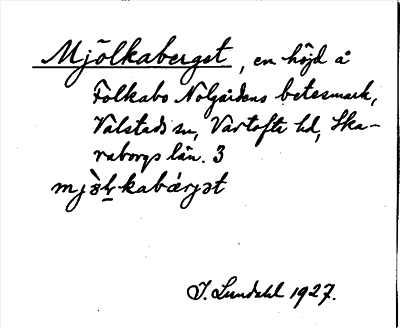 Mjölkaberget, en höjd å
Folkabo Nolgårdens betesmark,
Valstads sn, Vartofta hd, Ska-
raborgs län. 3
J. Lundahl 1927.